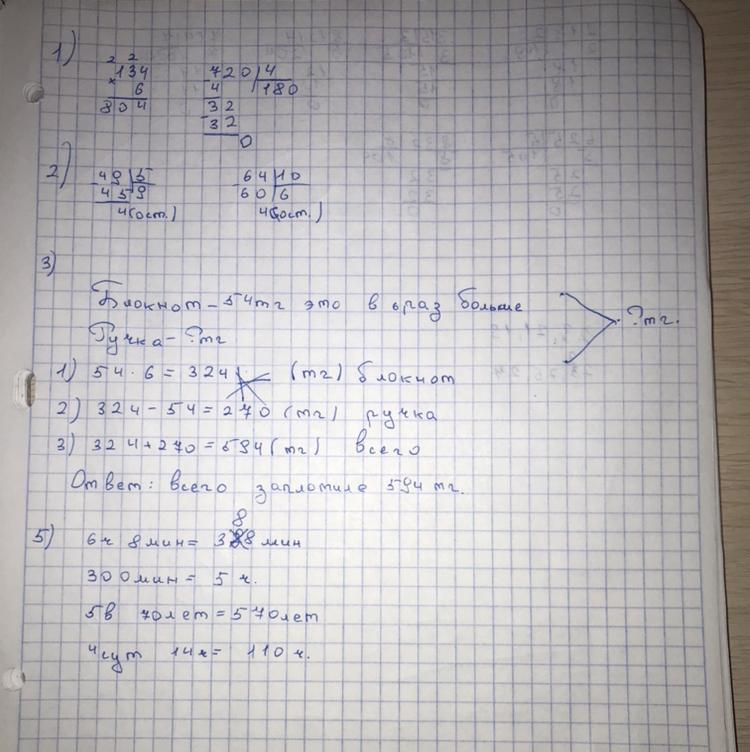 1)
2 2
134
× 6
804
720 4
4 180
32
32
0
2)
49 5
45 9
4(ост.)
64 10
60 6
4(ост.)
3)
Блокнот - 54тг это в 6раз больше
Ручка - ?тг
?тг.
1) 54 · 6 = 324 (тг) блокнот
2) 324 - 54 = 270 (тг) ручка
3) 324 + 270 = 594 (тг) всего
Ответ: всего заплотиле 594 тг.
8
5) 6ч 8мин = 3 8 мин
300мин = 5 ч.
5в 70лет = 570лет
4сут 14ч = 110 ч.